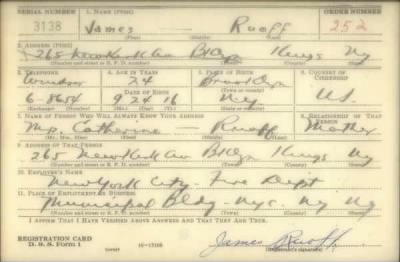 SERIAL NUMBER 1. NAME (Print) ORDER NUMBER
3138 James - Ruoff 252
(First) (Middle) (Last)
2. ADDRESS (Print)
265 New Kirk Ave Bklyn Kings Ny
(Number and street or R. F. D. number) (Town) (County) (State)
3. TELEPHONE 4. AGE IN YEARS 5. PLACE OF BIRTH 6. COUNTRY OF CITIZENSHIP
Windsor 24 Brooklyn
DATE OF BIRTH (Town or county)
6-8654 9 24 16 Ny US
(Exchange) (Number) (Mo.) (Day) (Yr.) (State or country)
7. NAME OF PERSON WHO WILL ALWAYS KNOW YOUR ADDRESS 8. RELATIONSHIP OF THAT PERSON
Mrs. Catherine - Ruoff Mother
(Mr., Mrs., Miss) (First) (Middle) (Last)
9. ADDRESS OF THAT PERSON
265 New Kirk Ave Bklyn Kings Ny
(Number and street or R. F. D. number) (Town) (County) (State)
10. EMPLOYER'S NAME
New York City - Fire Dept
11. PLACE OF EMPLOYMENT OR BUSINESS
Municipal Bldg - Nyc. Ny Ny
(Number and street or R. F. D. number) (Town) (County) (State)
I AFFIRM THAT I HAVE VERIFIED ABOVE ANSWERS AND THAT THEY ARE TRUE.
REGISTRATION CARD
D. S. S. Form 1 16-17105 James Ruoff
(Registrant's signature)